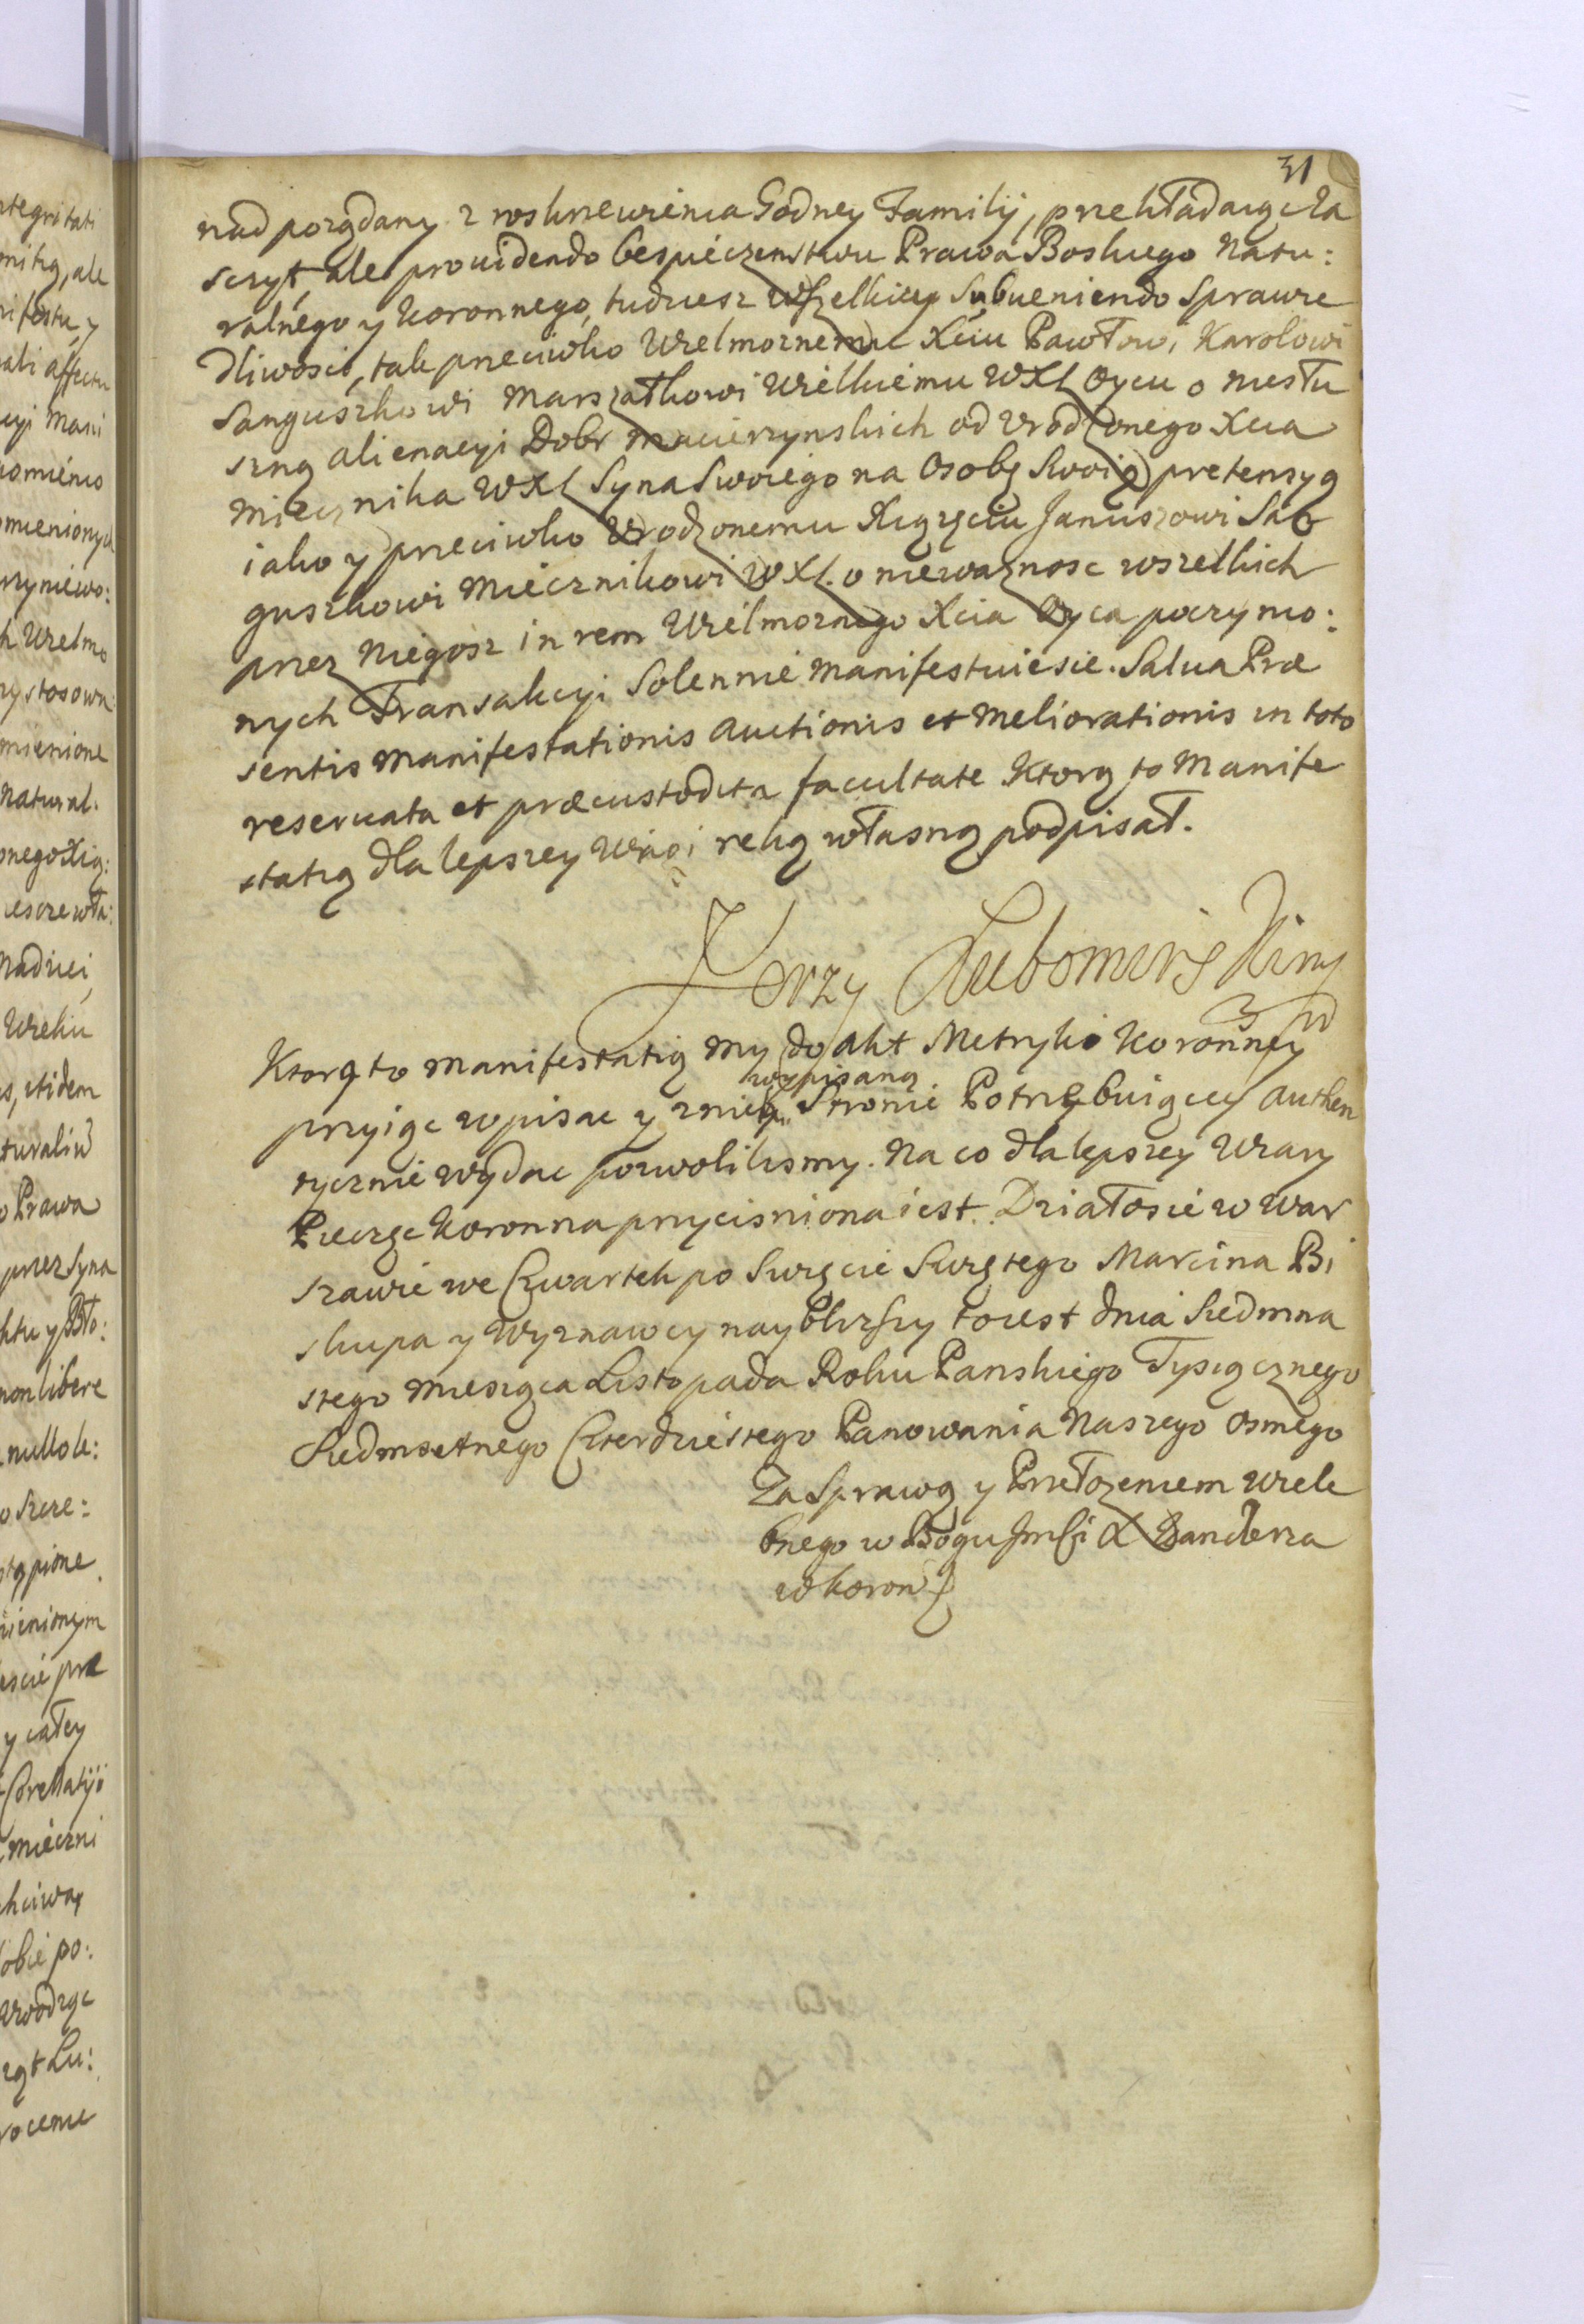 31
nad pożądany z roskrzewienia Godney Familij, przekładaiąc Za
sczyt, ale prouidendo bespieczenstwu Prawa Boskiego Natu:
ralnego y Koronnego, tudziesz wszelkiey Subueniendo Sprawie
dliwosci, tak przeciwko Wielmoznemu Xciu Pawłowi Karolowi
Sanguszkowi Marszałkowi Wielkiemu WXL Oycu o niesłu
szną alienacyi Dobr Macierzynskich od Vrodzonego Xcia
Miecznika WXL Syna Swoiego na Osobę Swoię pretensyą
iako y przeciwko Vrodzonemu Xiązęciu Januszowi San
guszkowi Miecznikowi WXL. o niewaznosc wszelkich
przez Niegosz in rem Wielmoznego Xcia Oyca poczynio:
nych Transakcyi Solennie Manifestuiesie. Salua Præ
sentis Manifestationis Auctionis et Meliorationis in toto
reseruata et præcustodita facultate Ktorą to Manife
statią dla lepszey Wiary ręką własną podpisał.
Jerzy Lubomirski
Ktorą to Manifestatią My do Akt Metryki Koronney
wypisaną
przyiąc wpisac y z nich Stronie Potrzebuiącey Authen
tycznie wydac pozwolilismy. Na co dla lepszey Wiary
Pieczęc Koronna przycisniona iest. Działosie w War
szawie we Czwartek po Swięcie Swiętego Marcina Bi
skupa y Wyznawcy nayblizszy toiest dnia Siedmna
stego Miesiąca Listopada Roku Panskiego Tysiącznego
Siedmsetnego Czterdziestego Panowania Naszego Osmego
Za Sprawą y Przełozeniem Wiele
bnego w Bogu Jmci X Kanclerza
w Koron
ntegritati
ale
y
ali affectu
Masi
omienio
omienionych
rzyniewo:
h Wielmo
rystosown:
mienione
Natural.
onego Xią:
Nadziei,
Wieku
s, itidem
o Prawa
przez Syna
non libere
nullo le:
stąpione
ienionym
y całey
Mieczni
obie po:
wodząc
ząt Lu: